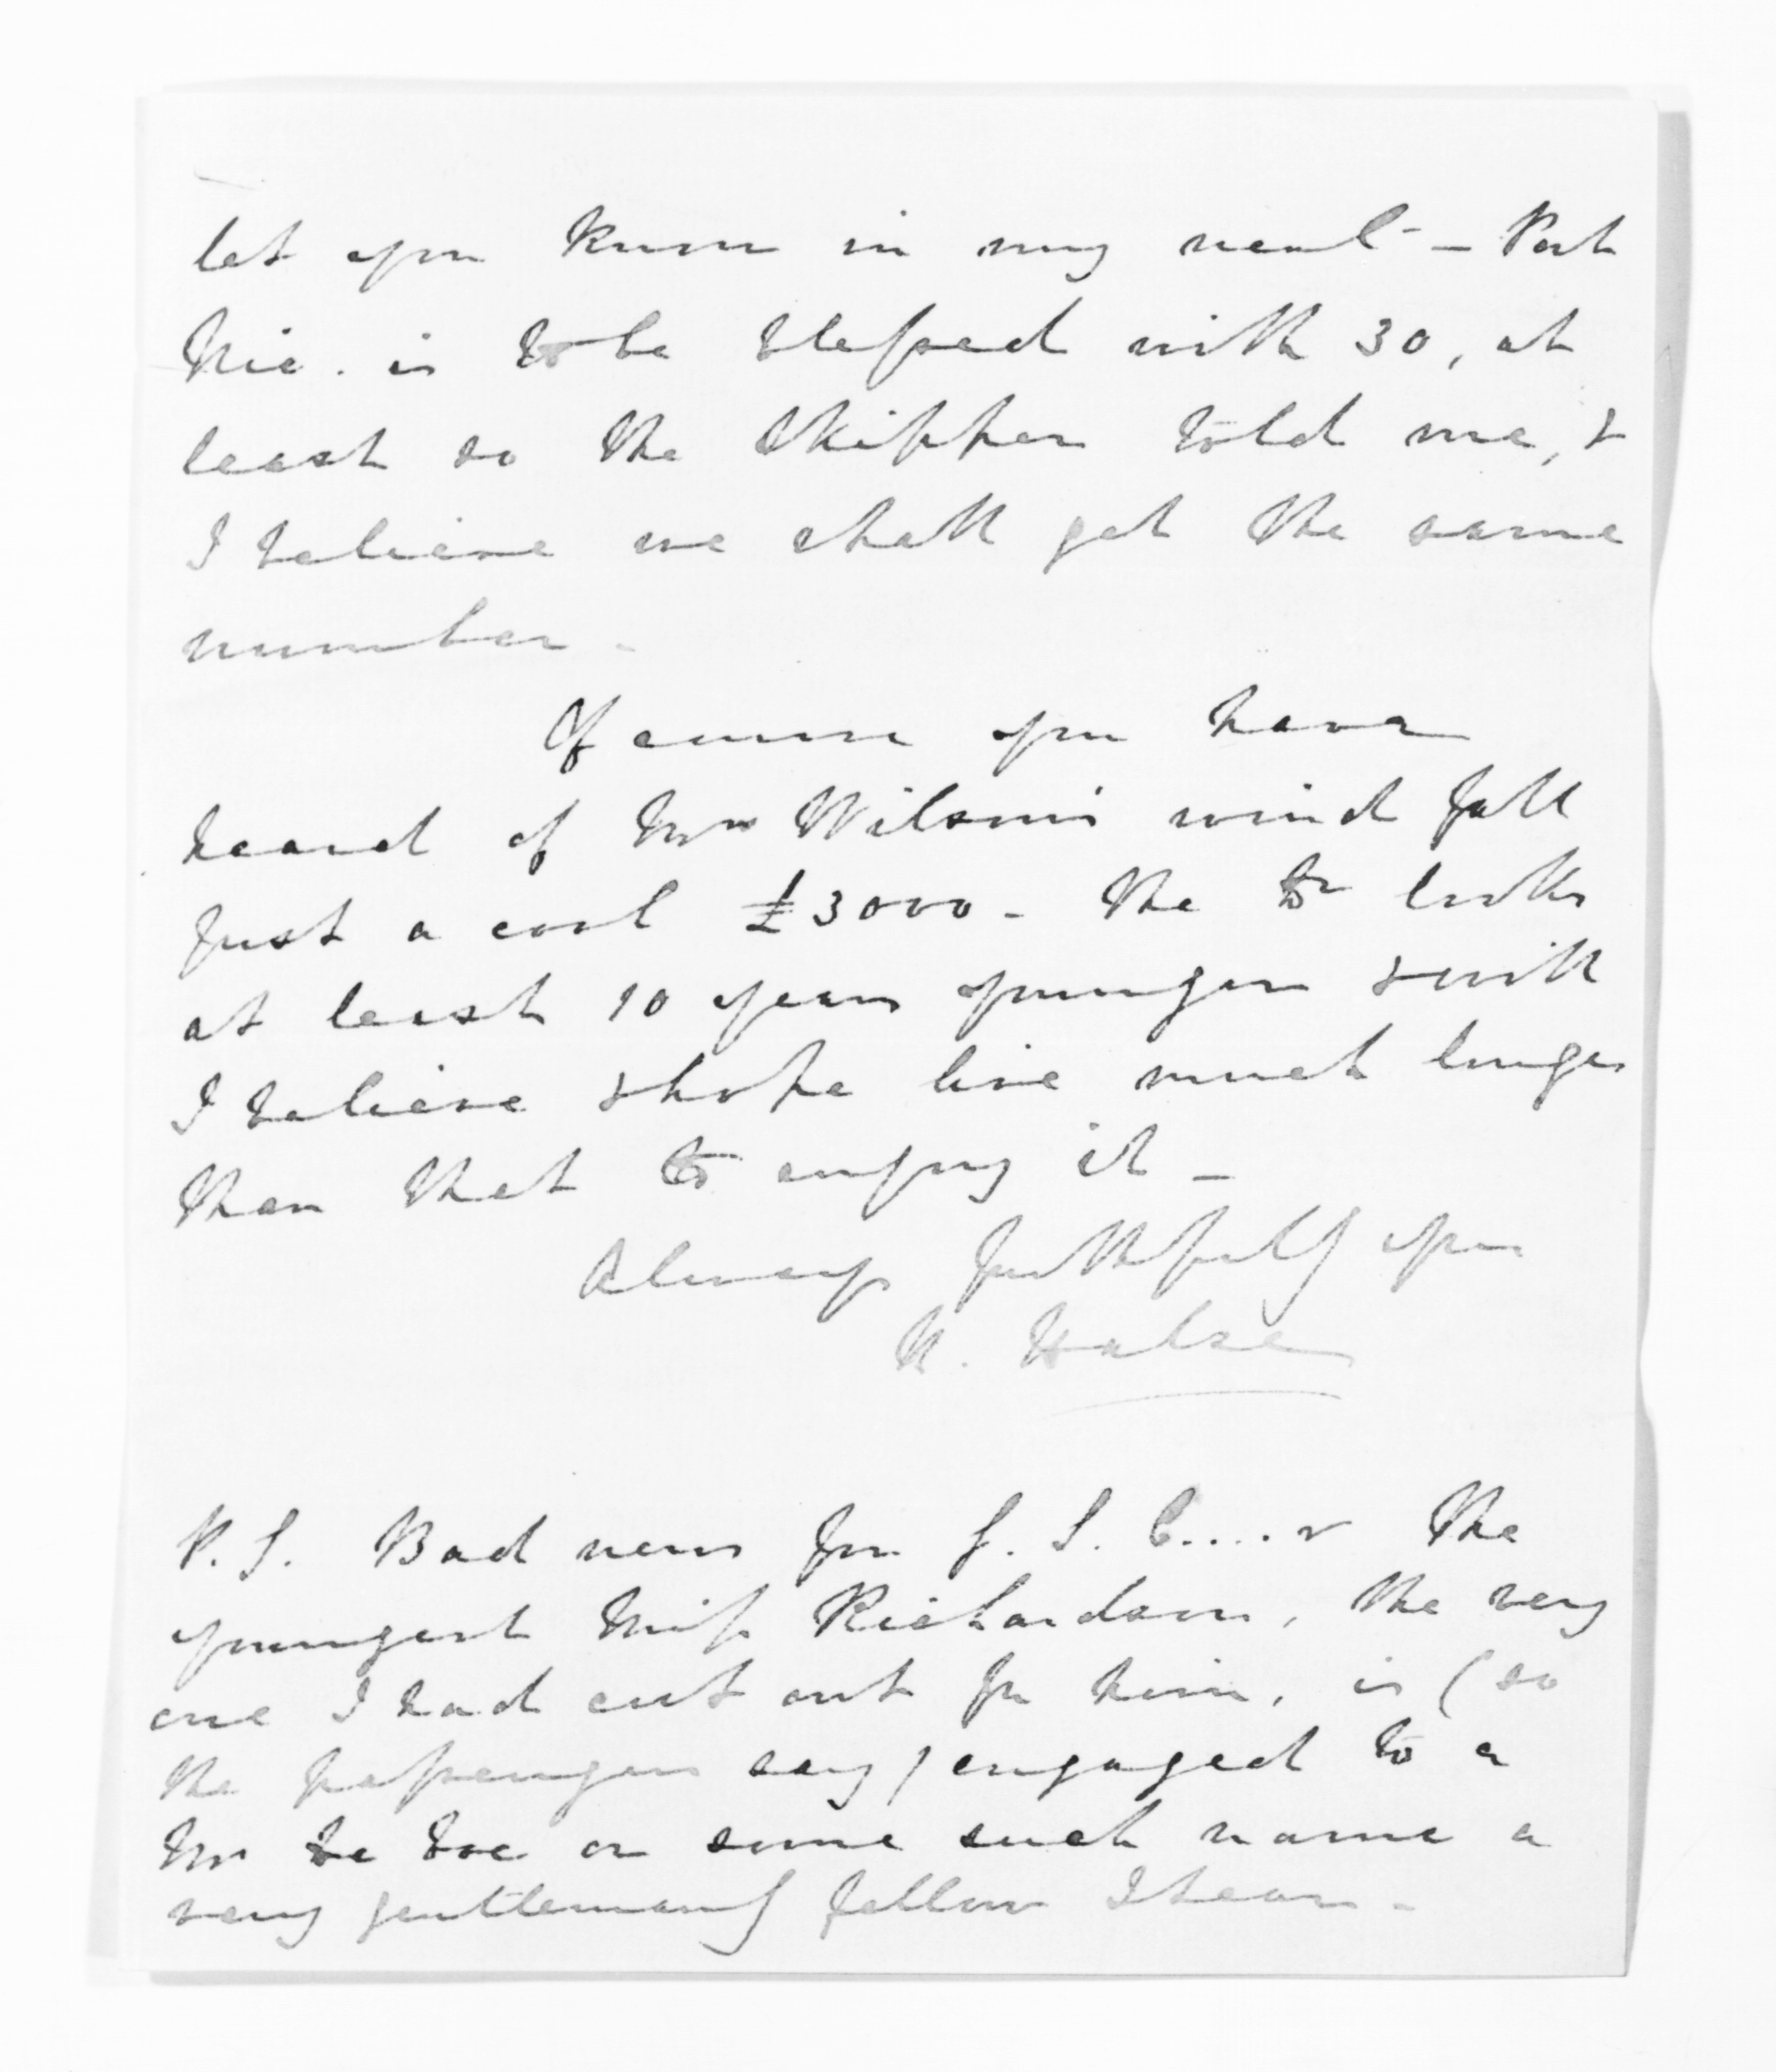 let you know in my next - Port
Nic. is to be blessed with 30, at
least so the Skipper told me, &
I believe we shall get the same
number -
Of course you have
heard of Mrs Wilson's wind fall
Just a cool £3000 - The Dr looks
at least 10 years younger & will
I believe & hope live much longer
than that to enjoy it -
Always faithfully yours
H. Halse
P.S. Bad news for J. S. C....r The
youngest Miss Richardson, the very
one I had cut out for him, is (so
the passengers say) engaged to a
Mr
or some such name a
very gentlemanly fellow I hear -